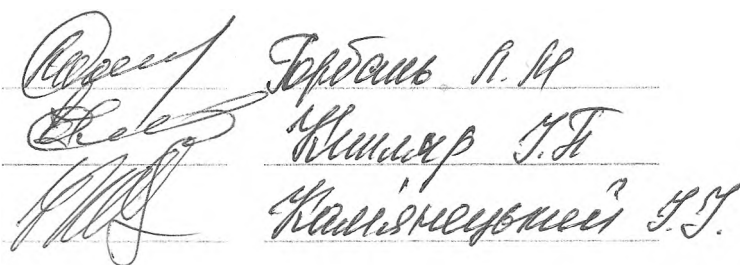 Горбань Л.М
Кишляр І.П
Кам'янецький І.І.